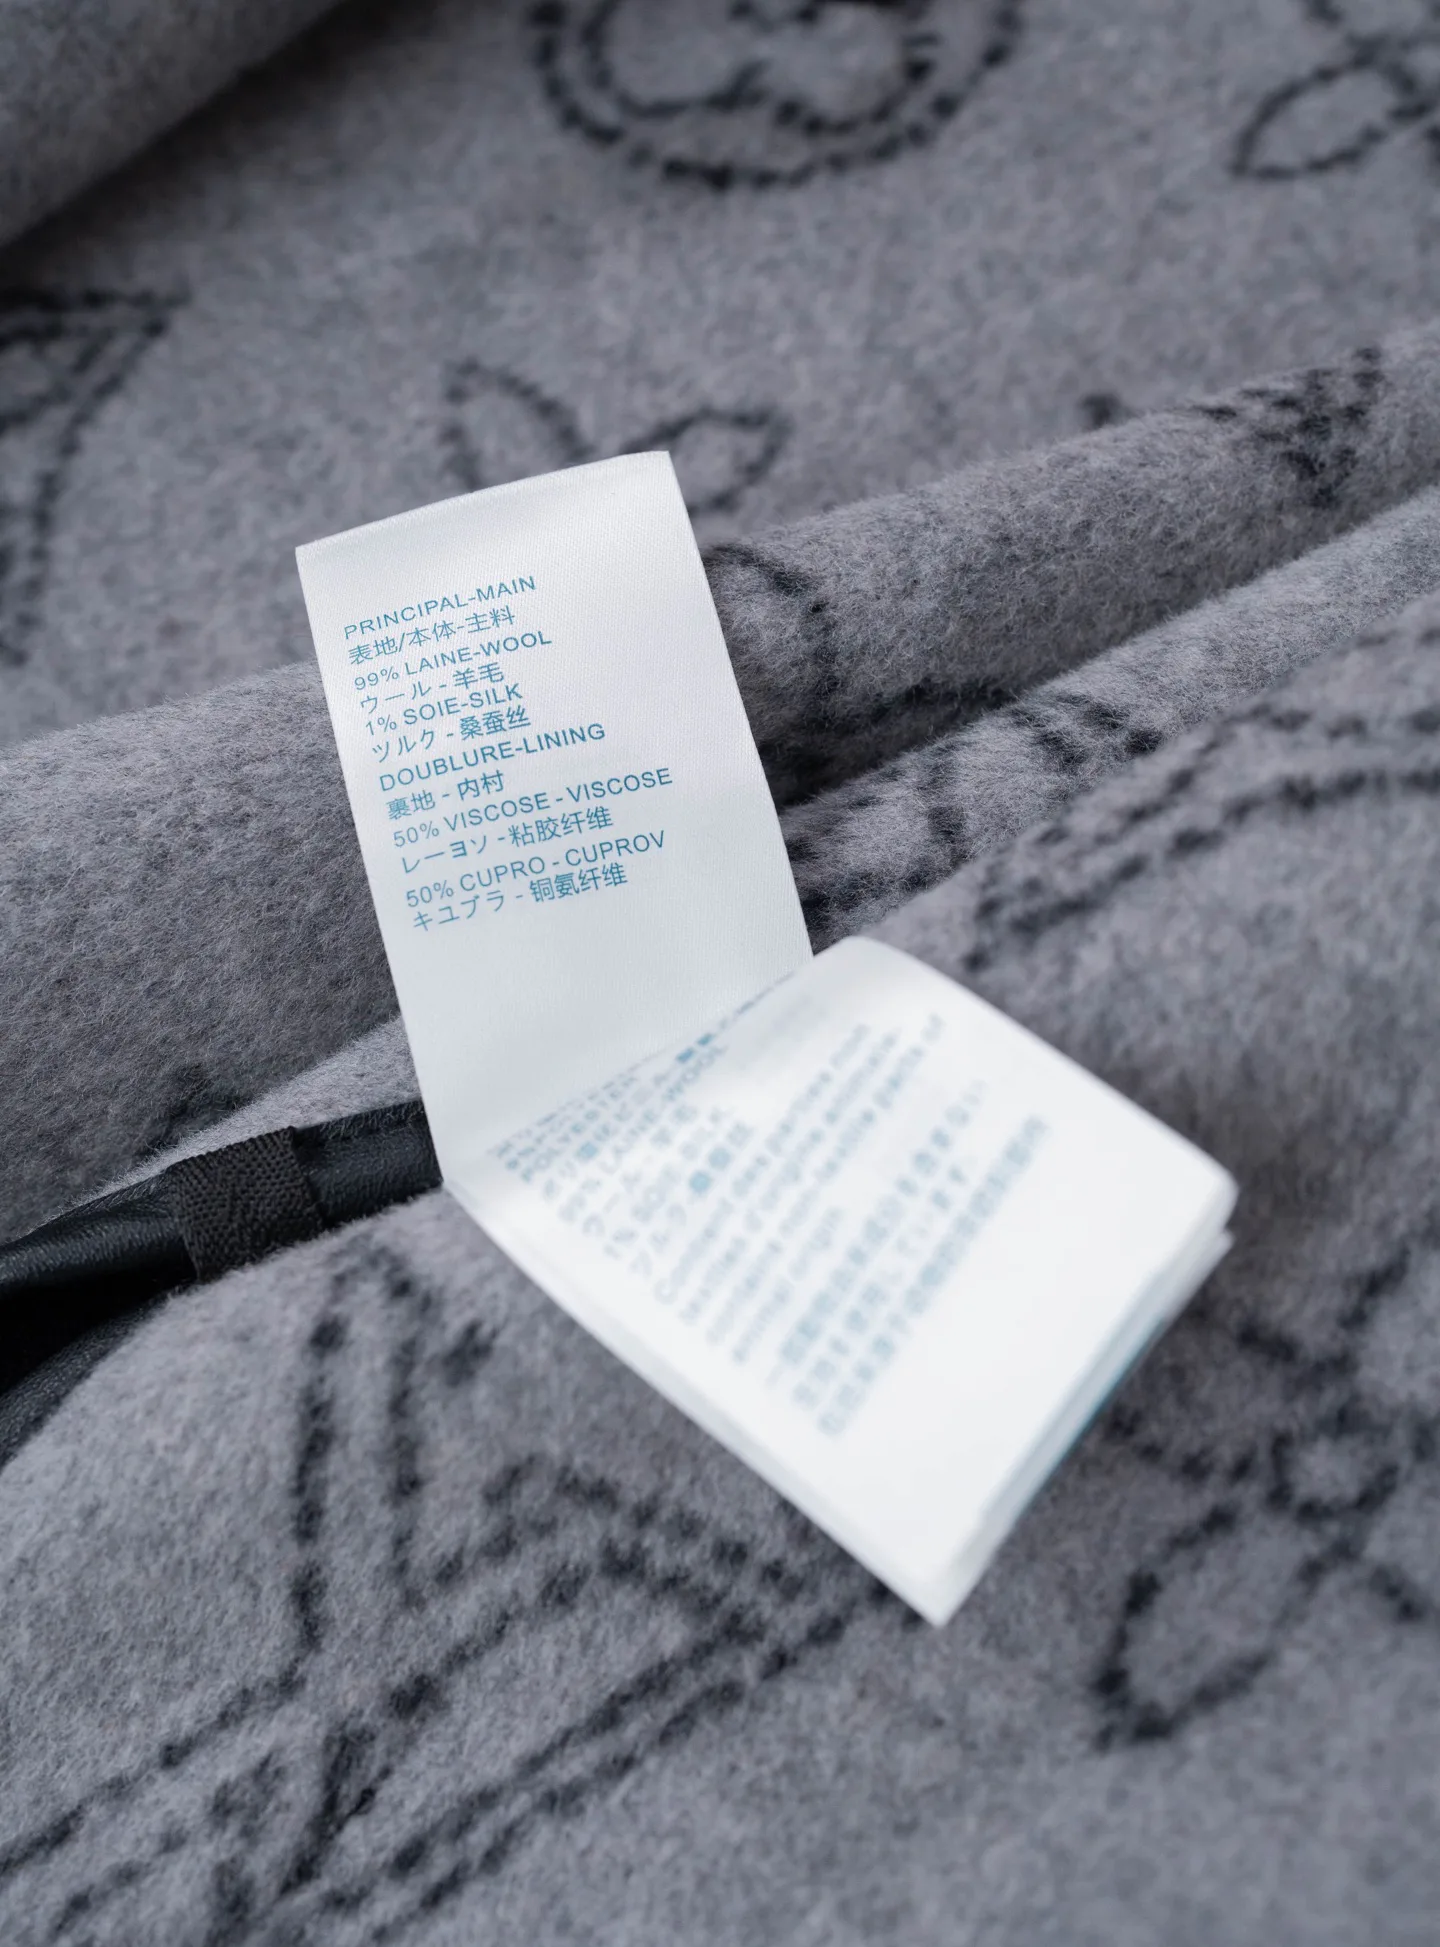 PRINCIPAL-MAIN
表地/本体-主料
99% LAINE-WOOL
ウール - 羊毛
1% SOIE-SILK
ツルク - 桑蚕丝
DOUBLURE-LINING
裏地 - 内村
50% VISCOSE - VISCOSE
レーヨソ - 粘胶纤维
50% CUPRO - CUPROV
キユプラ - 铜氨纤维
99% LAINE-WOOL
ウール - 羊毛
1% SOIE-SILK
Contient des parties non
textiles d'origine animale
Contains non-textile parts of
animal origin